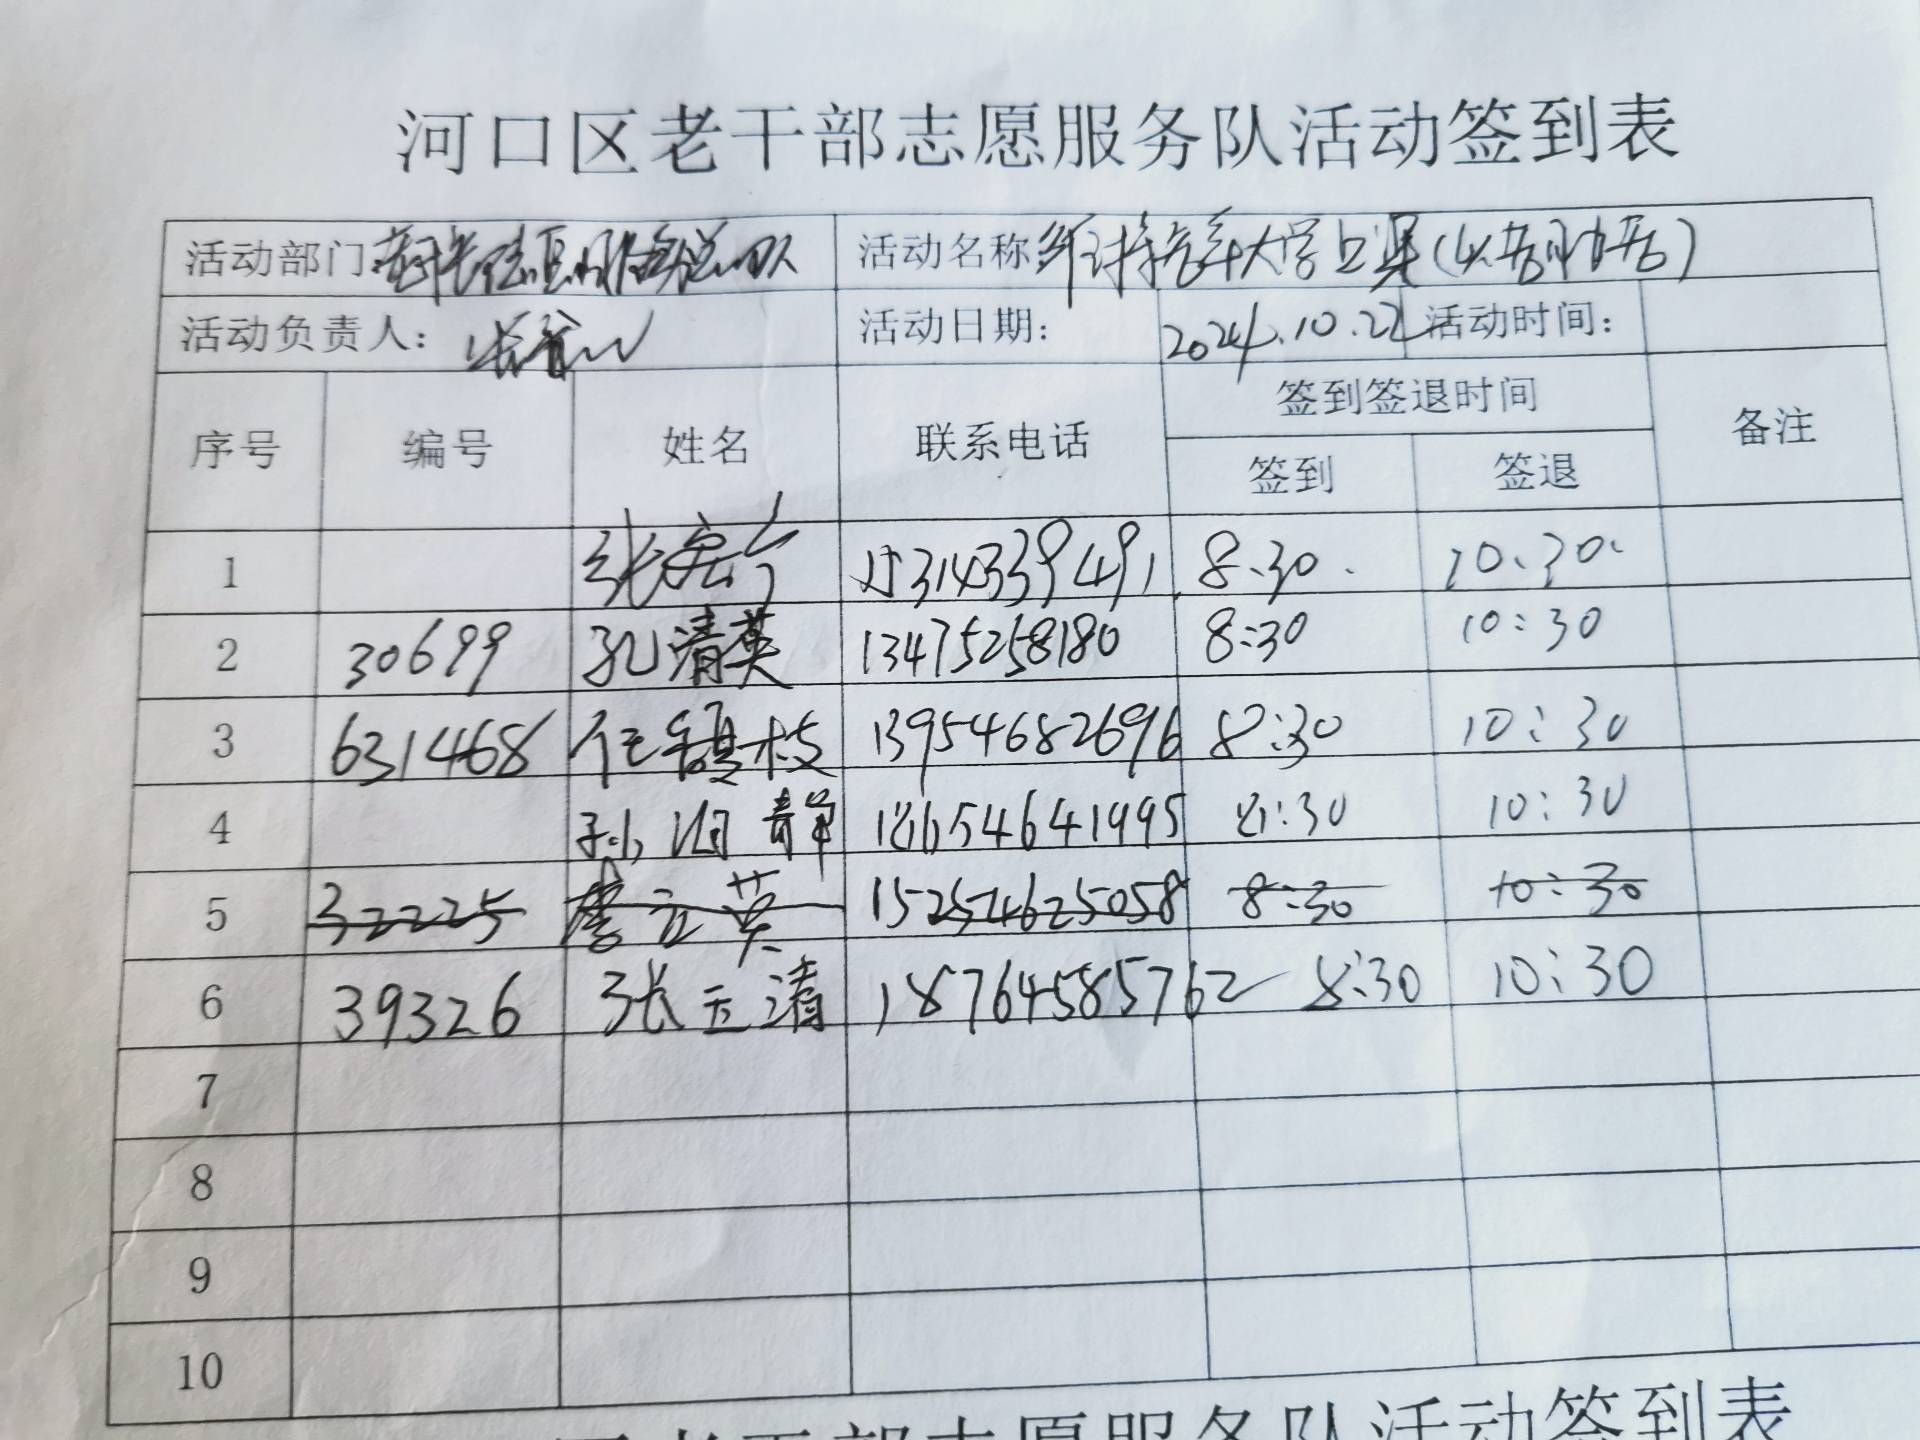 河口区老干部志愿服务队活动签到表
活动部门: 活动名称 维持老年大学 (以老助老)
活动负责人: 活动日期: 2024.10.22 活动时间:
序号 编号 姓名 联系电话 签到签退时间 备注
签到 签退
1 张 15314339491 8:30. 10:30.
2 30699 孔清英 13475258180 8:30 10:30
3 631468 任 枝 13954682696 8:30 10:30
4 孙 静 18654641995 8:30 10:30
5 32225 立英 15254625058 8:30 10:30
6 39326 张玉清 18764585762 8:30 10:30
7
8
9
10
老干部志愿服务队活动签到表